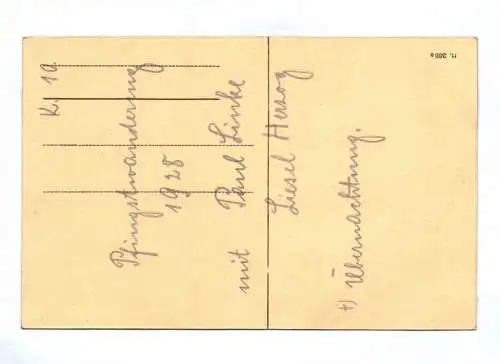 K. 19
Pfingstwanderung
1928
mit Paul Linke
Liesel Herzog
+) Übernachtung.
H. 388a